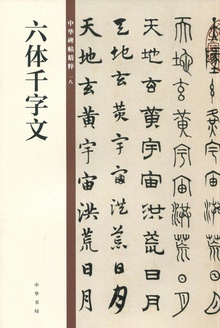 天地玄黃宇宙洪荒日月
天地玄黃宇宙洪荒日月
天地玄黃宇宙洪荒日月
天地玄黃宇宙洪荒日月
中华碑帖精粹
六体千字文
中华书局